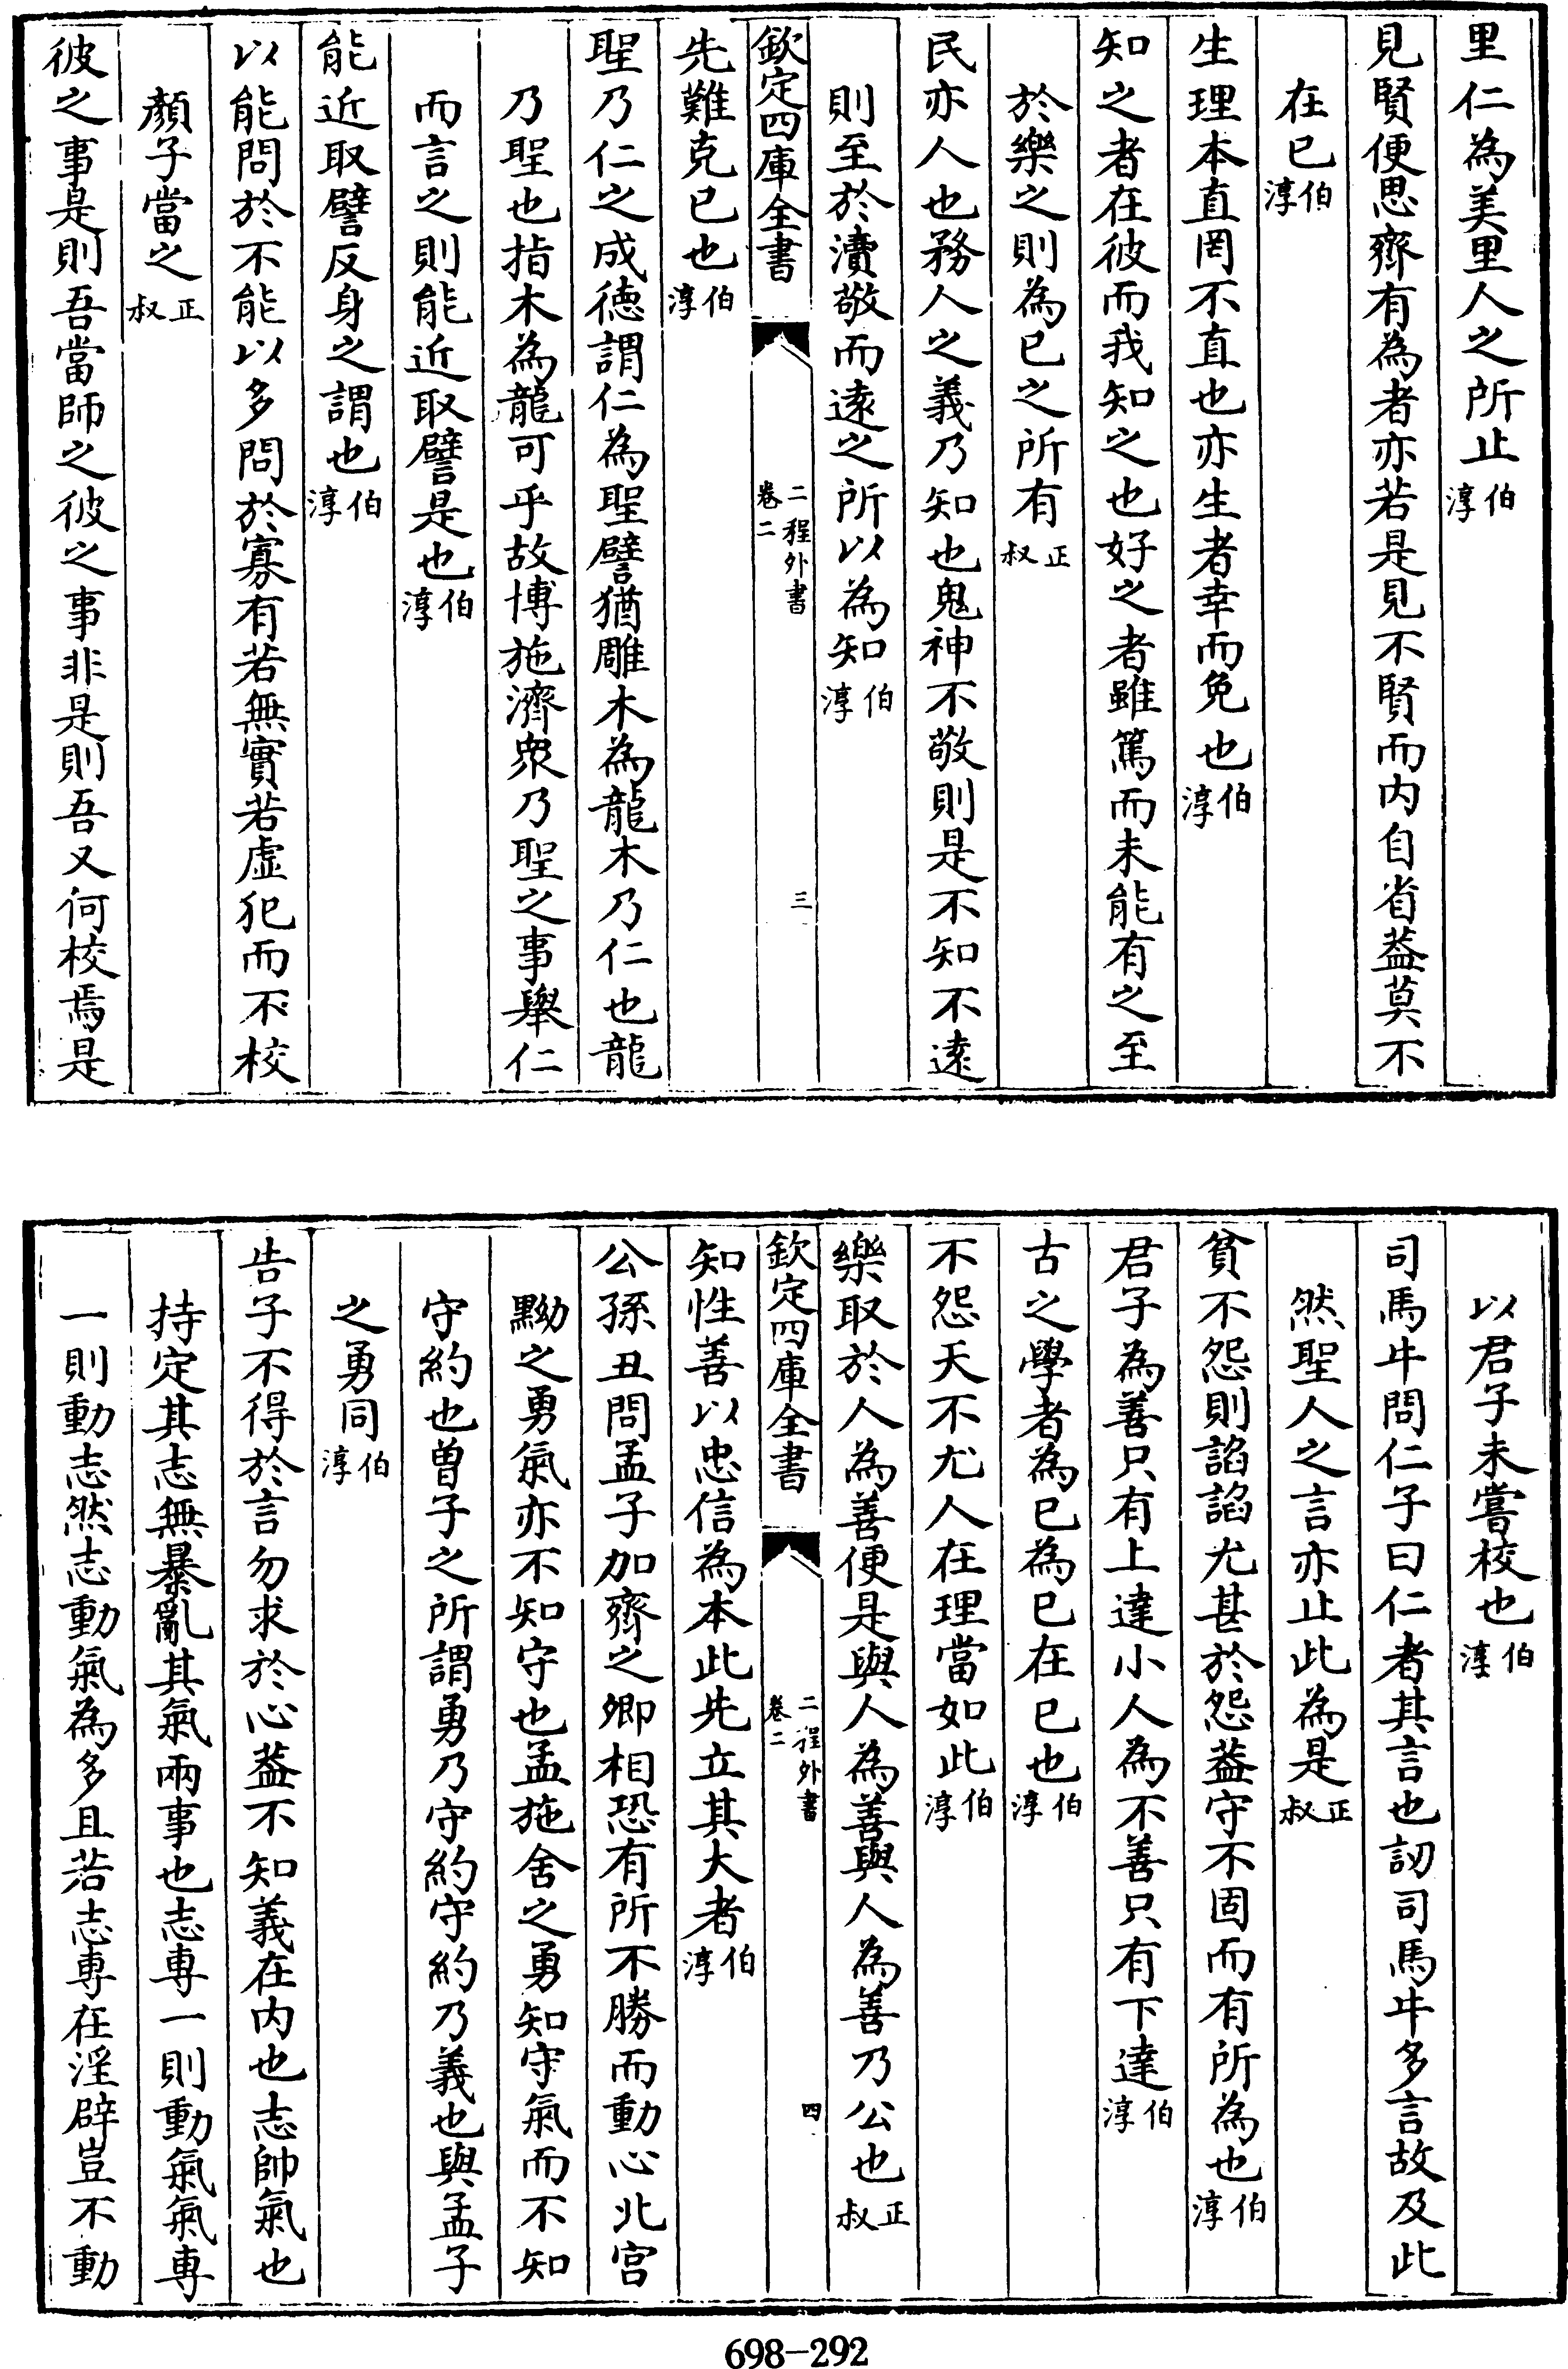 里仁為美里人之所止伯淳
見賢便思齊有為者亦若是見不賢而内自省葢莫不
在已伯淳
生理本直罔不直也亦生者幸而免也伯淳
知之者在彼而我知之也好之者雖篤而未能有之至
於樂之則為已之所有正叔
民亦人也務人之義乃知也鬼神不敬則是不知不逺
則至於瀆敬而逺之所以為知伯淳
欽定四庫全書
二程外書
卷二
三
先難克已也伯淳
聖乃仁之成徳謂仁為聖譬猶雕木為龍木乃仁也龍
乃聖也指木為龍可乎故博施濟衆乃聖之事舉仁
而言之則能近取譬是也伯淳
能近取譬反身之謂也伯淳
以能問於不能以多問於寡有若無實若虚犯而不校
顔子當之正叔
彼之事是則吾當師之彼之事非是則吾又何校焉是
以君子未嘗校也伯淳
司馬牛問仁子曰仁者其言也訒司馬牛多言故及此
然聖人之言亦止此為是正叔
貧不怨則諂諂尤甚於怨葢守不固而有所為也伯淳
君子為善只有上達小人為不善只有下達伯淳
古之學者為已為已在已也伯淳
不怨天不尤人在理當如此伯淳
樂取於人為善便是與人為善與人為善乃公也正叔
欽定四庫全書
二程外書
卷二
四
知性善以忠信為本此先立其大者伯淳
公孫丑問孟子加齊之卿相恐有所不勝而動心北宫
黝之勇氣亦不知守也孟施舍之勇知守氣而不知
守約也曾子之所謂勇乃守約守約乃義也與孟子
之勇同伯淳
告子不得於言勿求於心葢不知義在内也志帥氣也
持定其志無暴亂其氣兩事也志專一則動氣氣專
一則動志然志動氣為多且若志專在淫辟豈不動
698-292